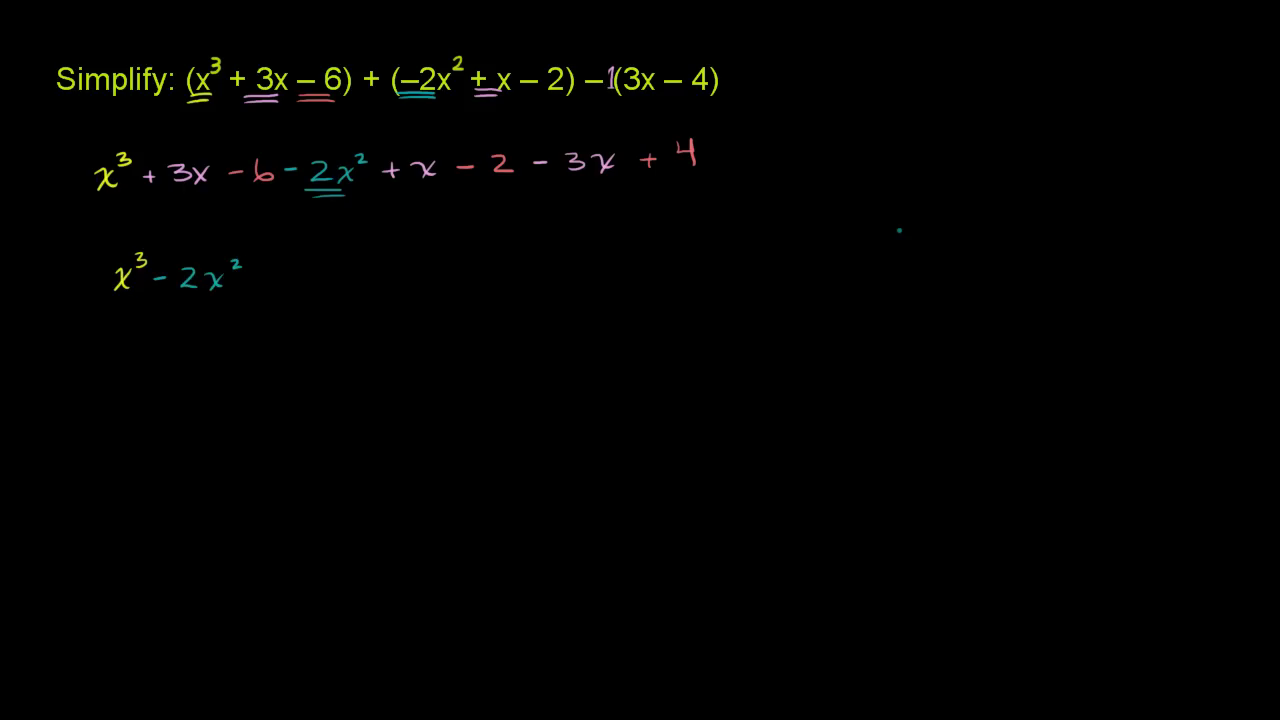 Simplify: (x³ + 3x – 6) + (–2x² + x – 2) – 1(3x – 4)
x³ + 3x - 6 - 2x² + x - 2 - 3x + 4
x³ - 2x²